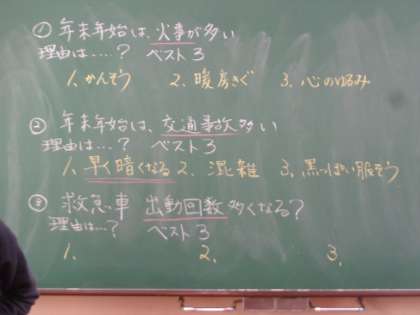 ① 年末年始は、火事が多い
理由は‥‥? ベスト3
1、かんそう 2、暖房きぐ 3、心のゆるみ
② 年末年始は、交通事故多い
理由は…? ベスト3
1、早く暗くなる 2、混雑 3、黒っぽい服そう
③ 救急車 出動回数多くなる?
理由は…? ベスト3
1、 2、 3、